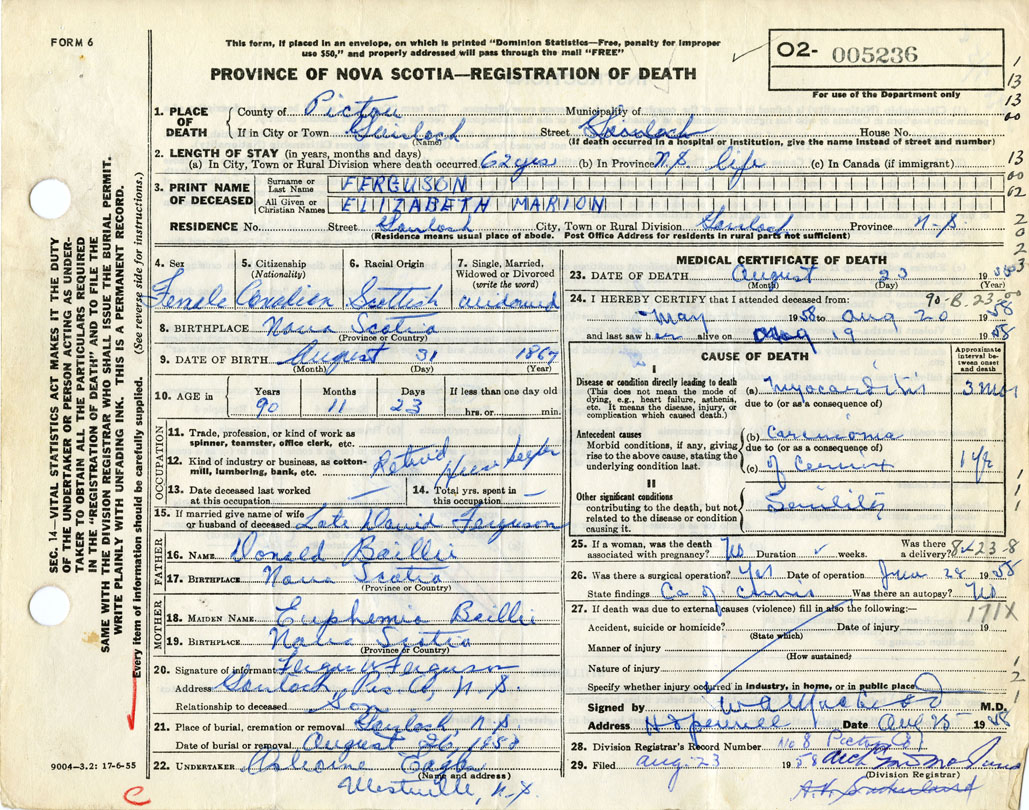 FORM 6
This form, if placed in an envelope, on which is printed "Dominion Statistics—Free, penalty for improper
use $50," and properly addressed will pass through the mail "FREE"
PROVINCE OF NOVA SCOTIA—REGISTRATION OF DEATH
O2- 005236
For use of the Department only
1. PLACE OF DEATH
County of Pictou Municipality of
If in City or Town Gairloch Street Gairloch House No.
(Name) (If death occurred in a hospital or institution, give the name instead of street and number)
2. LENGTH OF STAY (in years, months and days)
(a) In City, Town or Rural Division where death occurred 62 yrs (b) In Province N.S. life (c) In Canada (if immigrant)
3. PRINT NAME OF DECEASED
Surname or Last Name FERGUSON
All Given or Christian Names ELIZABETH MARION
RESIDENCE No. Street Gairloch City, Town or Rural Division Gairloch Province N.S
(Residence means usual place of abode. Post Office Address for residents in rural parts not sufficient)
4. Sex
Female
5. Citizenship
(Nationality)
Canadian
6. Racial Origin
Scottish
7. Single, Married,
Widowed or Divorced
(write the word)
widowed
8. BIRTHPLACE Nova Scotia
(Province or Country)
9. DATE OF BIRTH August 31 1867
(Month) (Day) (Year)
10. AGE in
Years Months Days If less than one day old
90 11 23 hrs. or min.
OCCUPATION
11. Trade, profession, or kind of work as
spinner, teamster, office clerk, etc.
12. Kind of industry or business, as cotton-
mill, lumbering, bank, etc.
Retired House keeper
13. Date deceased last worked
at this occupation
14. Total yrs. spent in
this occupation
15. If married give name of wife
or husband of deceased Late David Ferguson
FATHER
16. NAME Donald Baillie
17. BIRTHPLACE Nova Scotia
(Province or Country)
MOTHER
18. MAIDEN NAME Euphemia Baillie
19. BIRTHPLACE Nova Scotia
(Province or Country)
20. Signature of informant Fergus Ferguson
Address Gairloch, Pic. Co, N.S.
Relationship to deceased Son
21. Place of burial, cremation or removal Gairloch N.S
Date of burial or removal August 26, 1958
22. UNDERTAKER Osborne
(Name and address)
Westville, N.S.
MEDICAL CERTIFICATE OF DEATH
23. DATE OF DEATH August 23 1958
(Month) (Day) (Year)
24. I HEREBY CERTIFY that I attended deceased from: 90-B.23
May 1958 to Aug 20 1958
and last saw her alive on Aug 19 1958
CAUSE OF DEATH
Approximate
interval between
onset
and death
I
Disease or condition directly leading to death
(This does not mean the mode of
dying, e.g., heart failure, asthenia,
etc. It means the disease, injury, or
complication which caused death.)
(a) Myocarditis 3 mos
due to (or as a consequence of)
Antecedent causes
Morbid conditions, if any, giving
rise to the above cause, stating the
underlying condition last.
(b) Carcinoma
due to (or as a consequence of)
(c) of Cervix 1 yr
II
Other significant conditions
contributing to the death, but not
related to the disease or condition
causing it.
Senility
25. If a woman, was the death
associated with pregnancy? No Duration weeks.
Was there
a delivery?
26. Was there a surgical operation? Yes Date of operation June 28 1958
State findings Ca of Cervix Was there an autopsy? No
27. If death was due to external causes (violence) fill in also the following:— 171X
Accident, suicide or homicide? Date of injury 19
(State which)
Manner of injury
(How sustained)
Nature of injury
Specify whether injury occurred in industry, in home, or in public place
Signed by M.D.
Address Hopewell Date Aug 25 1958
28. Division Registrar's Record Number No 8
29. Filed Aug 23 1958
(Division Registrar)
SEC. 14—VITAL STATISTICS ACT MAKES IT THE DUTY
OF THE UNDERTAKER OR PERSON ACTING AS UNDER-
TAKER TO OBTAIN ALL THE PARTICULARS REQUIRED
IN THE "REGISTRATION OF DEATH" AND TO FILE THE
SAME WITH THE DIVISION REGISTRAR WHO SHALL ISSUE THE BURIAL PERMIT.
WRITE PLAINLY WITH UNFADING INK. THIS IS A PERMANENT RECORD.
Every item of information should be carefully supplied. (See reverse side for instructions.)
9004—3.2: 17-6-55